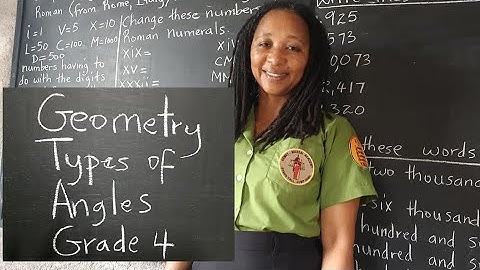 Roman (from Rome, Italy)
i=1 V=5 X=10
L=50 C=100 M=1000
D=500
numbers having to
do with the digits
Change these number
Roman Numerals.
XIX =
XV =
XXXii =
Xi
CM
MM
,925
,573
0,073
2,417
,320
these words
two thousand
six thousand
hundred and s
hundred and s
Geometry
Types of
Angles
Grade 4